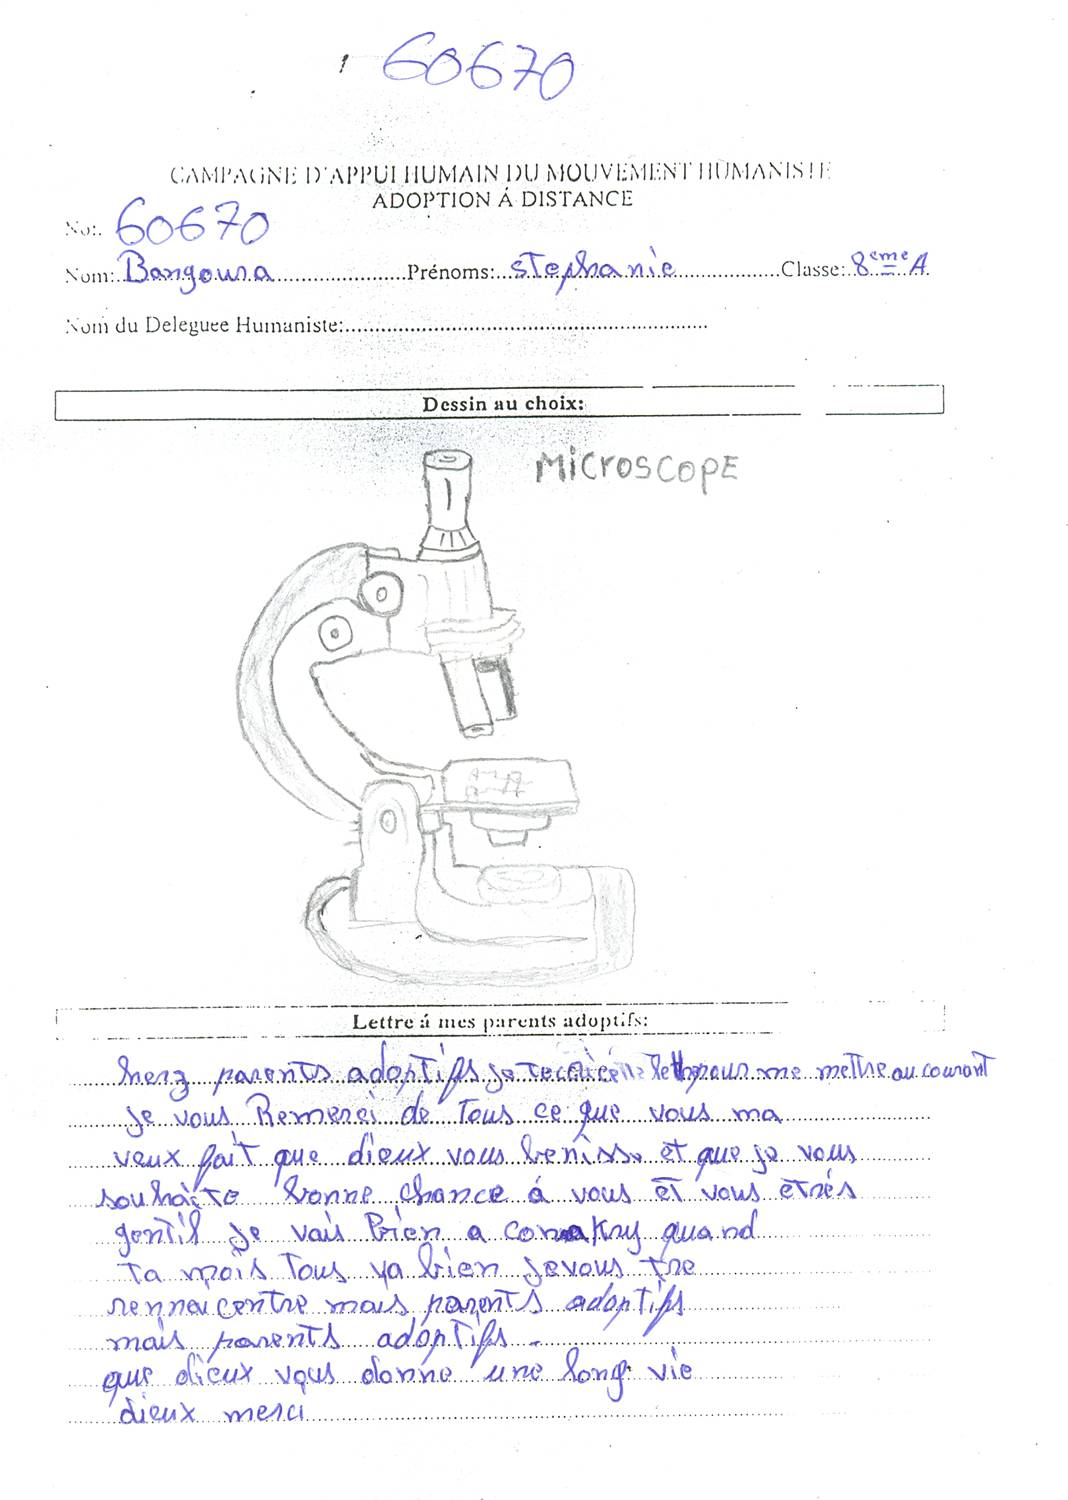 60670
CAMPAGNE D'APPUI HUMAIN DU MOUVEMENT HUMANISTE
ADOPTION Á DISTANCE
No:. 60670
Nom: Bangoura Prénoms: stephanie Classe: 8eme A
Nom du Deleguee Humaniste:
Dessin au choix:
MicroscopE
Lettre á mes parents adoptifs:
herz parents adoptifs je pour me mettre au courant
je vous Remerci de Tous ce que vous ma
veux fait que dieux vous beniss et que je vous
souhaite bonne chance á vous et vous etres
gentil je vais bien a conakry quand
Ta mois Tous va bien jevous
mais parents adoptifs
mais parents adoptifs.
que dieux vous donne une long vie
dieux merci